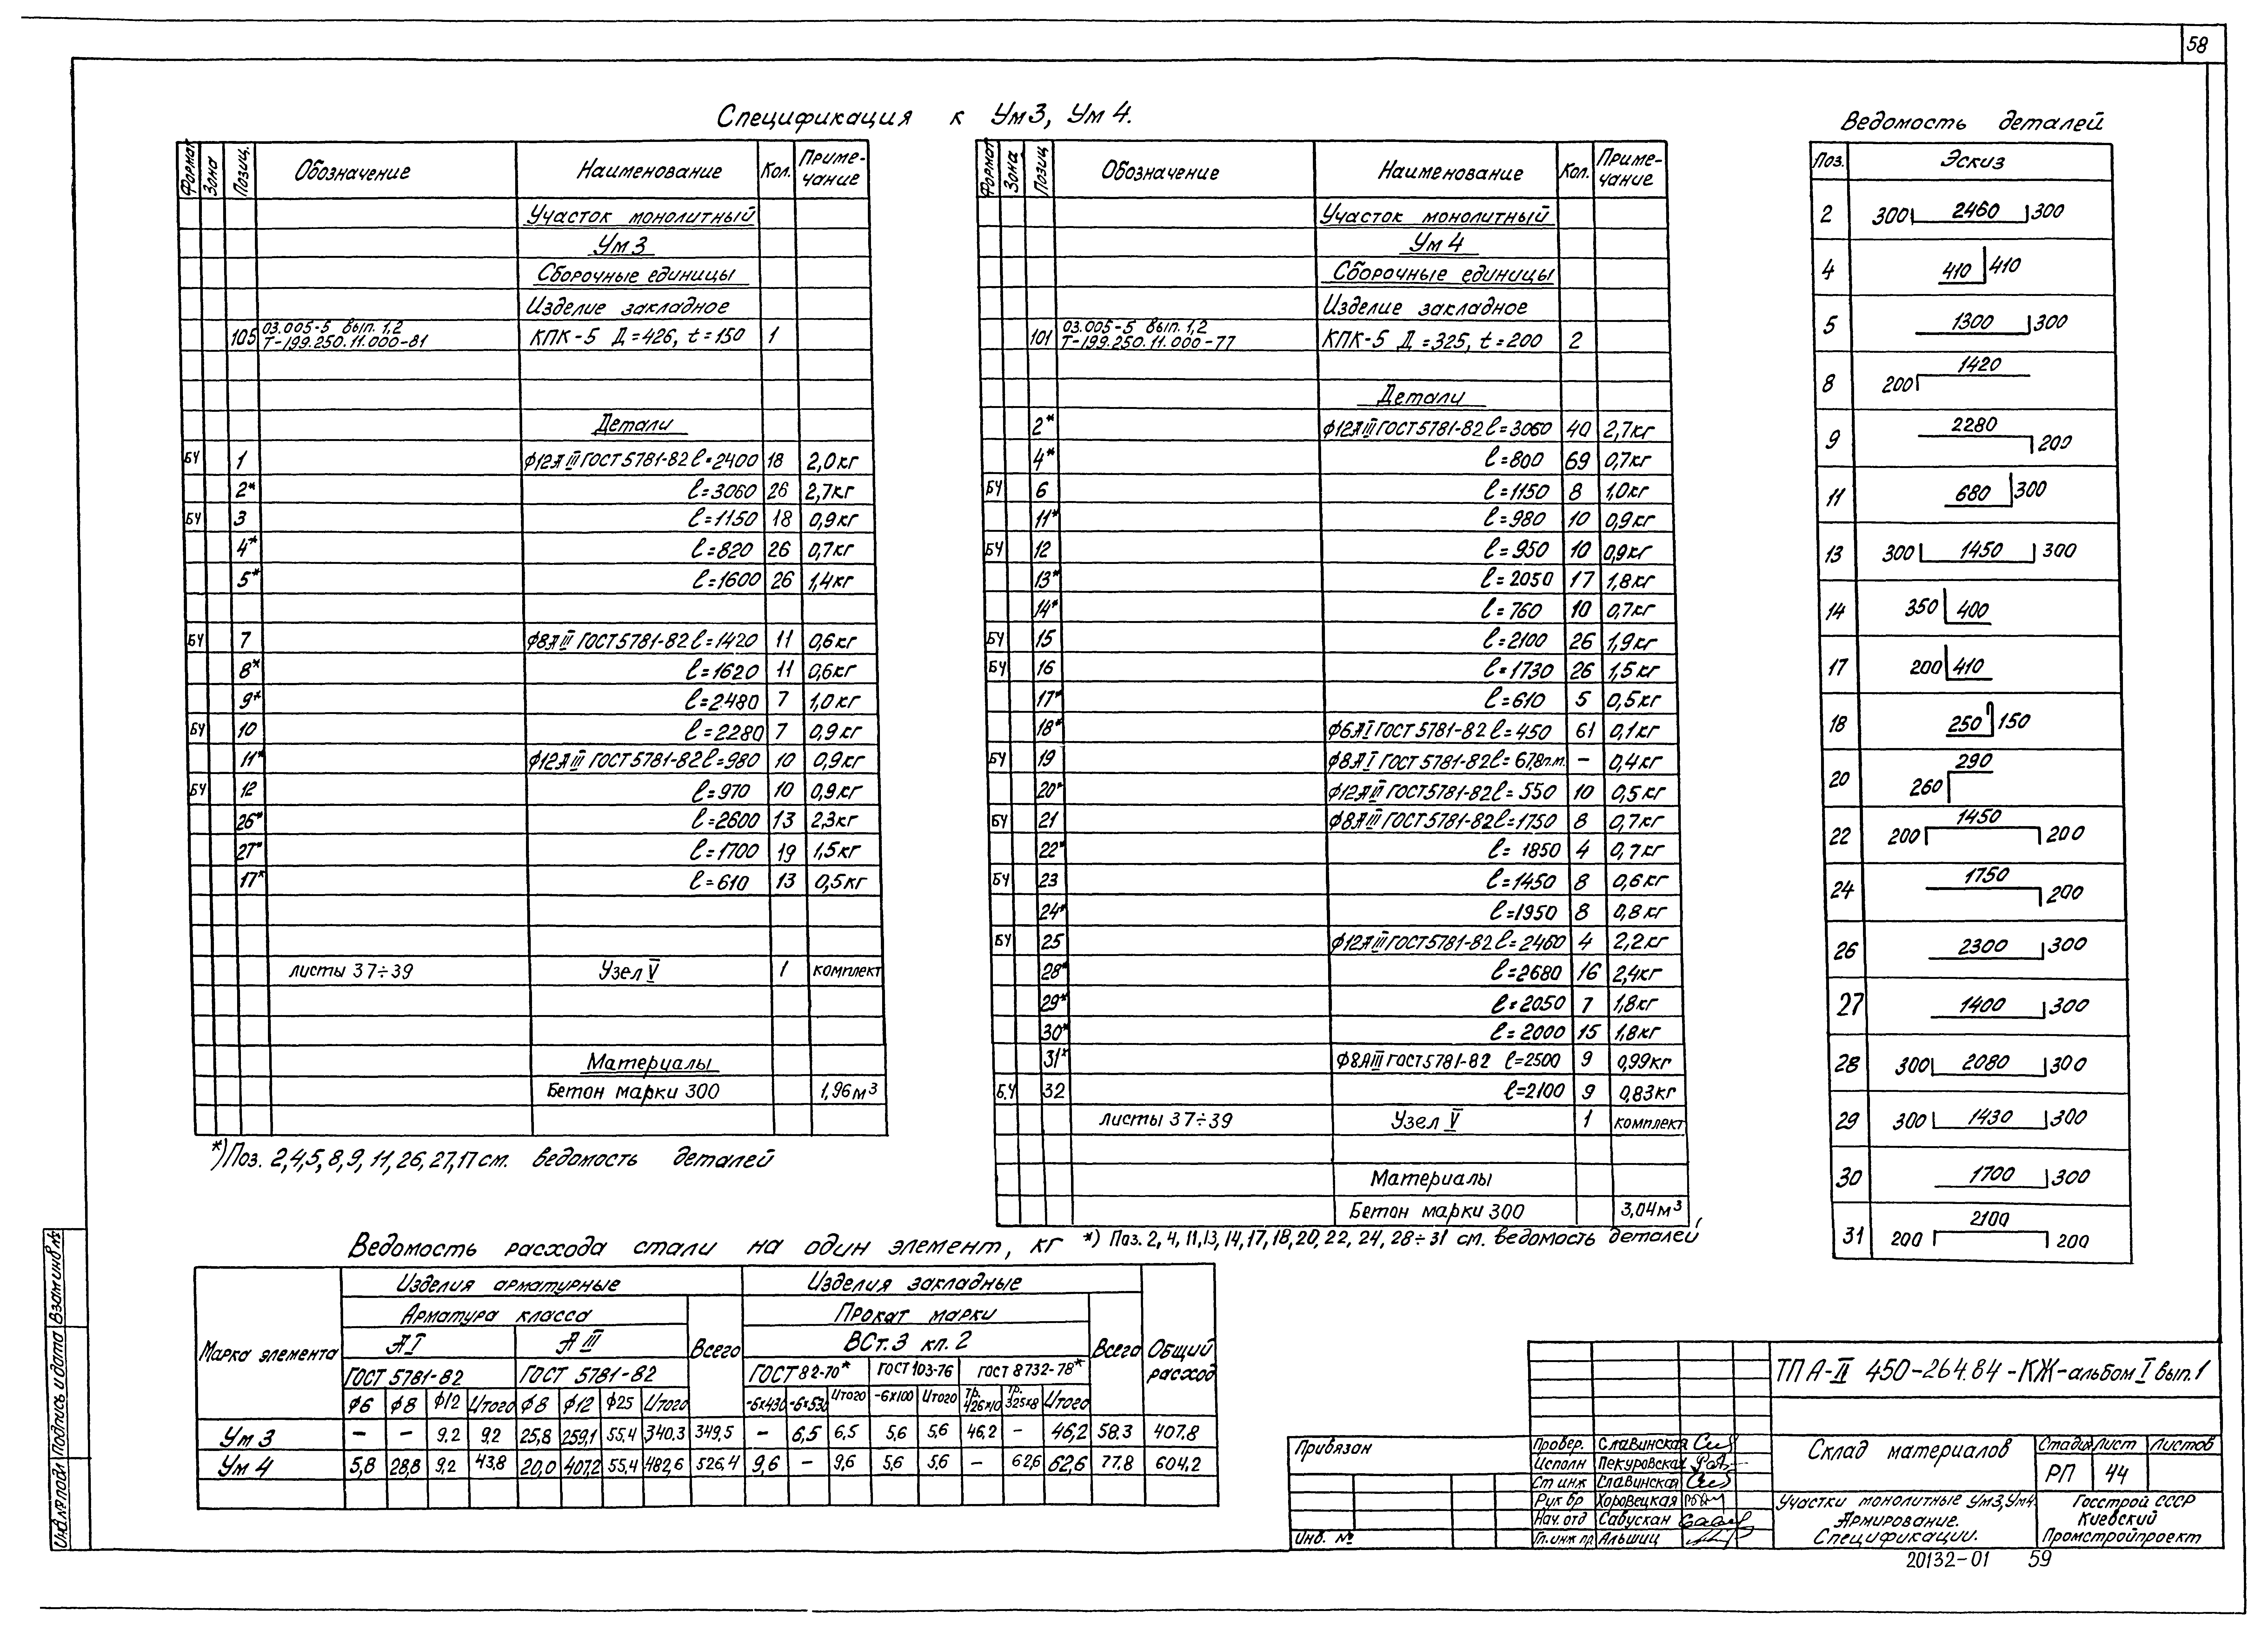 58
Спецификация к Ум3, Ум 4.
Формат Зона Позиц. Обозначение Наименование Кол. Приме-чание
Участок монолитный
Ум 3
Сборочные единицы
Изделие закладное
105 03.005-5 вып. 1,2 Т-199.250.11.000-81 КПК-5 Д=426, t=150 1
Детали
БЧ 1 ф12АIII ГОСТ 5781-82 ℓ=2400 18 2,0кг
2* ℓ=3060 26 2,7кг
БЧ 3 ℓ=1150 18 0,9кг
4* ℓ=820 26 0,7кг
5* ℓ=1600 26 1,4кг
БЧ 7 ф8АIII ГОСТ 5781-82 ℓ=1420 11 0,6кг
8* ℓ=1620 11 0,6кг
9* ℓ=2480 7 1,0кг
БЧ 10 ℓ=2280 7 0,9кг
11* ф12АIII ГОСТ 5781-82 ℓ=980 10 0,9кг
БЧ 12 ℓ=970 10 0,9кг
26* ℓ=2600 13 2,3кг
27* ℓ=1700 19 1,5кг
17* ℓ=610 13 0,5кг
листы 37÷39 Узел V 1 комплект
Материалы
Бетон марки 300 1,96м³
*) Поз. 2,4,5,8,9,11,26,27,17 см. ведомость деталей
Формат Зона Позиц Обозначение Наименование Кол. Приме-чание
Участок монолитный
Ум 4
Сборочные единицы
Изделие закладное
101 03.005-5 вып. 1,2 Т-199.250.11.000-77 КПК-5 Д=325, t=200 2
Детали
2* ф12АIII ГОСТ 5781-82 ℓ=3060 40 2,7кг
4* ℓ=800 69 0,7кг
БЧ 6 ℓ=1150 8 1,0кг
11* ℓ=980 10 0,9кг
БЧ 12 ℓ=950 10 0,9кг
13* ℓ=2050 17 1,8кг
14* ℓ=760 10 0,7кг
БЧ 15 ℓ=2100 26 1,9кг
БЧ 16 ℓ=1730 26 1,5кг
17* ℓ=610 5 0,5кг
18* ф6АI ГОСТ 5781-82 ℓ=450 61 0,1кг
БЧ 19 ф8АI ГОСТ 5781-82 ℓ=67,8п.м. - 0,4кг
20* ф12АIII ГОСТ 5781-82 ℓ=550 10 0,5кг
БЧ 21 ф8АIII ГОСТ 5781-82 ℓ=1750 8 0,7кг
22* ℓ=1850 4 0,7кг
БЧ 23 ℓ=1450 8 0,6кг
24* ℓ=1950 8 0,8кг
БЧ 25 ф12АIII ГОСТ 5781-82 ℓ=2460 4 2,2кг
28* ℓ=2680 16 2,4кг
29* ℓ=2050 7 1,8кг
30* ℓ=2000 15 1,8кг
31* ф8АIII ГОСТ 5781-82 ℓ=2500 9 0,99кг
Б.Ч 32 ℓ=2100 9 0,83кг
листы 37÷39 Узел V 1 комплект
Материалы
Бетон марки 300 3,04м³
*) Поз. 2, 4, 11,13, 14,17, 18, 20, 22, 24, 28÷31 см. ведомость деталей
Ведомость деталей
Поз. Эскиз
2 300 2460 300
4 410 410
5 1300 300
8 200 1420
9 2280 200
11 680 300
13 300 1450 300
14 350 400
17 200 410
18 250 150
20 260 290
22 200 1450 200
24 1750 200
26 2300 300
27 1400 300
28 300 2080 300
29 300 1430 300
30 1700 300
31 200 2100 200
Ведомость расхода стали на один элемент, кг
Марка элемента Изделия арматурные Изделия закладные Общий расход
Арматура класса Всего Прокат марки Всего
АI АIII ВСт.3 кп.2
ГОСТ 5781-82 ГОСТ 5781-82 ГОСТ 82-70* ГОСТ 103-76 ГОСТ 8732-78*
ф6 ф8 ф12 Итого ф8 ф12 ф25 Итого -6х430 -6х530 Итого -6х100 Итого тр. 426х10 тр. 325х8 Итого
Ум 3 - - 9.2 9.2 25,8 259,1 55.4 340,3 349,5 - 6,5 6,5 5,6 5,6 46,2 - 46,2 58.3 407.8
Ум 4 5,8 28,8 9,2 43,8 20,0 407,2 55,4 482,6 526,4 9,6 - 9,6 5,6 5,6 - 62,6 62,6 77.8 604,2
Привязан
Инв. №
Провер. Славинская
Исполн Пекуровская
Ст инж Славинская
Рук бр Хоровецкая
Нач. отд Савускан
Гл. инж пр Альшиц
ТП А-II 450-264.84-КЖ-альбом I вып.1
Склад материалов
Стадия Лист Листов
РП 44
Участки монолитные Ум3, Ум4.
Армирование.
Спецификации.
Госстрой СССР
Киевский
Промстройпроект
20132-01 59
Инв.№ подл Подпись и дата Взам инв №